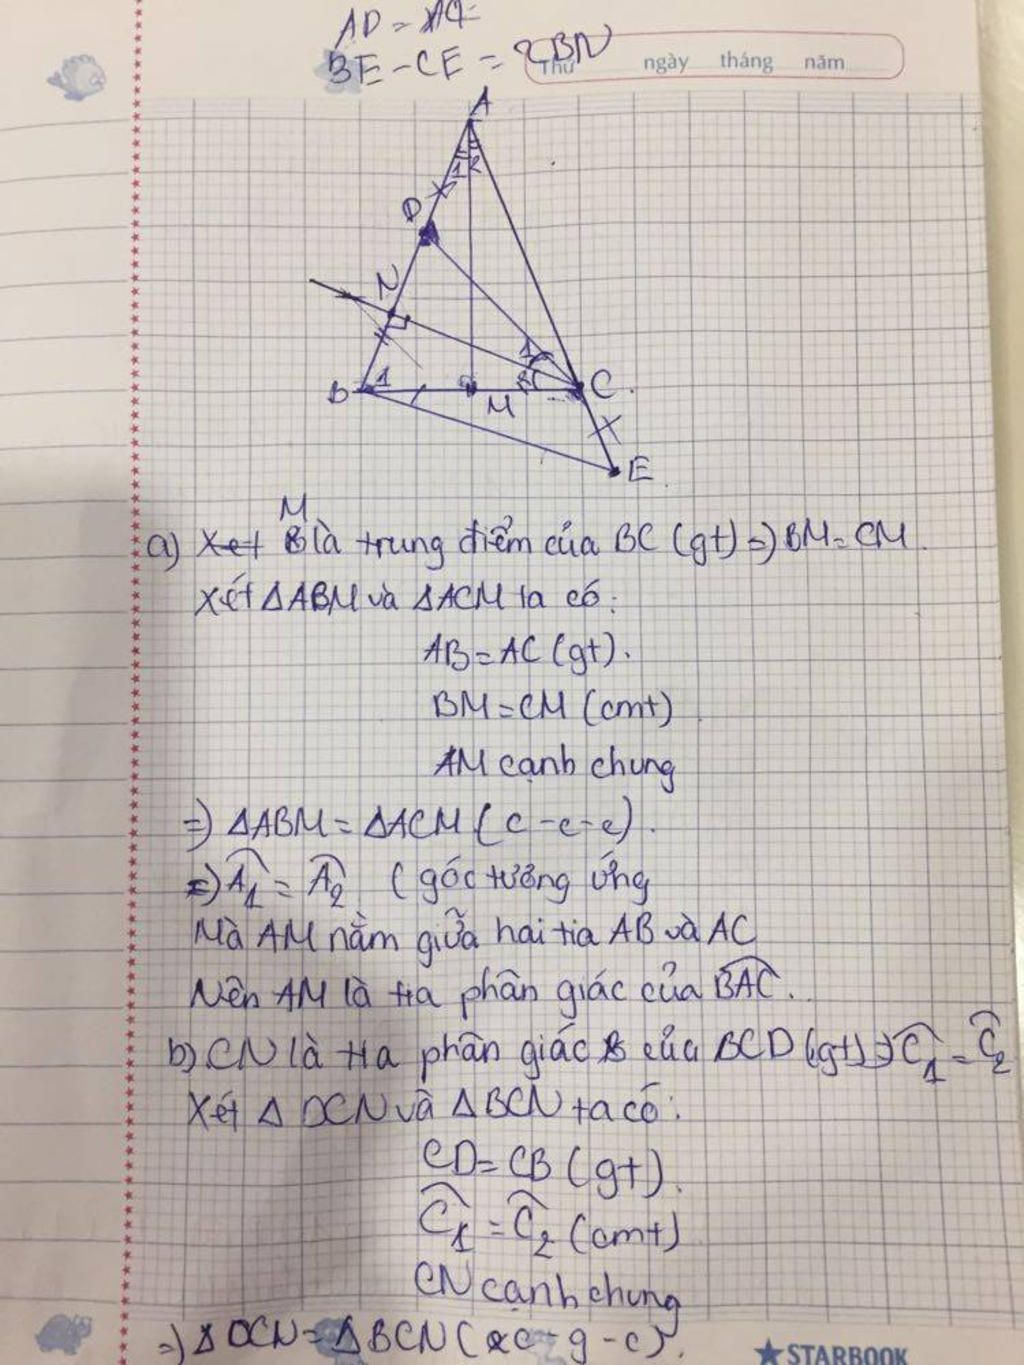 AD =
BE - CE = 2BN
Thứ ngày tháng năm
A
1 2
D
N
1
B 1 2 C
M
E
a) Xet M là trung điểm của BC (gt) => BM = CM.
Xét ΔABM và ΔACM ta có:
AB = AC (gt).
BM = CM (cmt)
AM cạnh chung
=> ΔABM = ΔACM (c-c-c).
=> Â1 = Â2 (góc tương ứng
Mà AM nằm giữa hai tia AB và AC
Nên AM là tia phân giác của BAC.
b) CN là tia phân giác của BCD (gt) => Ĉ1 = Ĉ2
Xét Δ DCN và ΔBCN ta có:
CD = CB (gt).
Ĉ1 = Ĉ2 (cmt)
CN cạnh chung
=> Δ DCN = ΔBCN (c-g-c).
STARBOOK